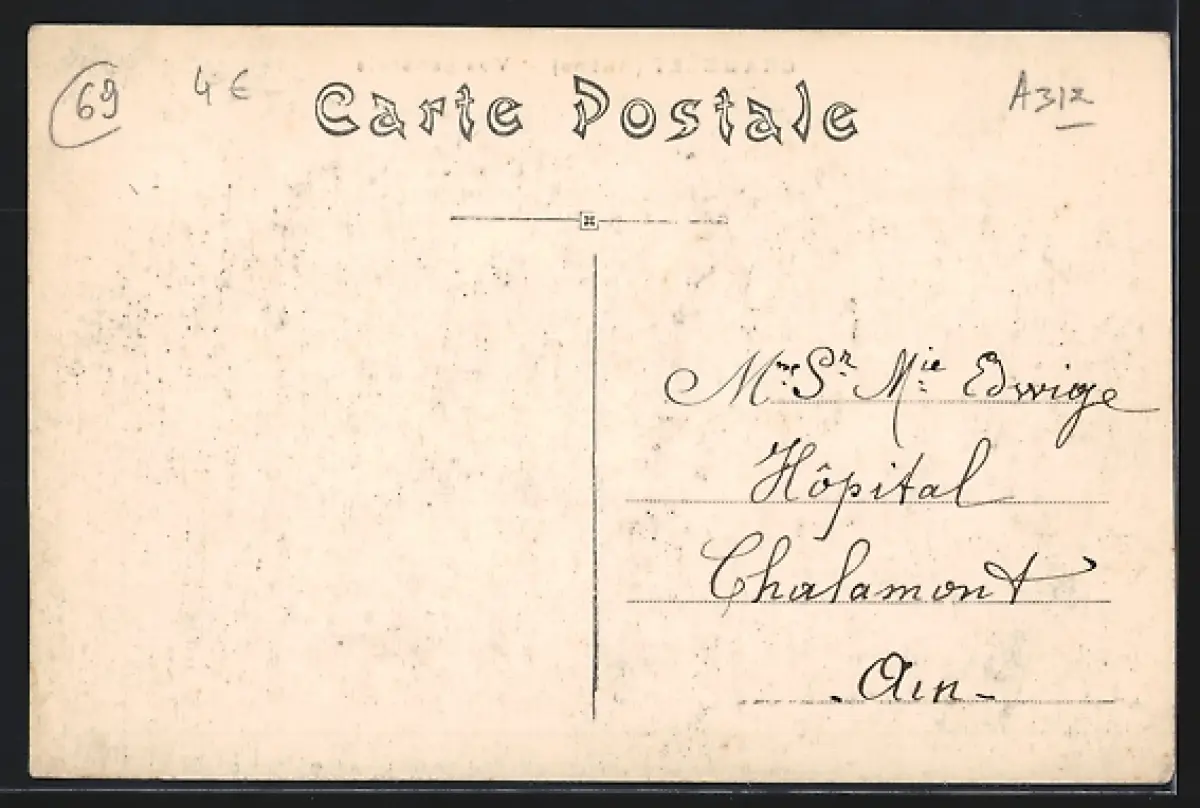 69
4 €
A312
Carte Postale
Mme Sr Mie Edwige
Hôpital
Chalamont
- Ain -